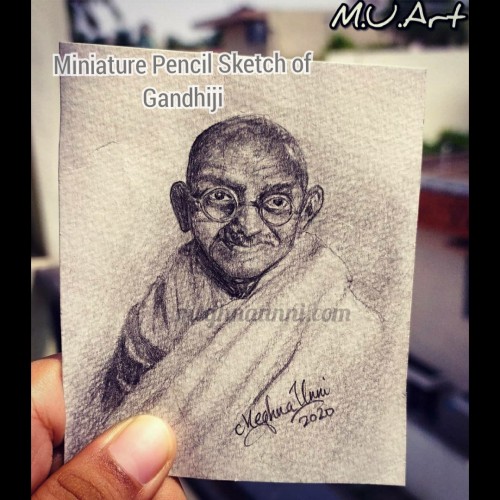 M.U.Art
Miniature Pencil Sketch of
Gandhiji
meghnaunni.com
Meghna Unni
2020